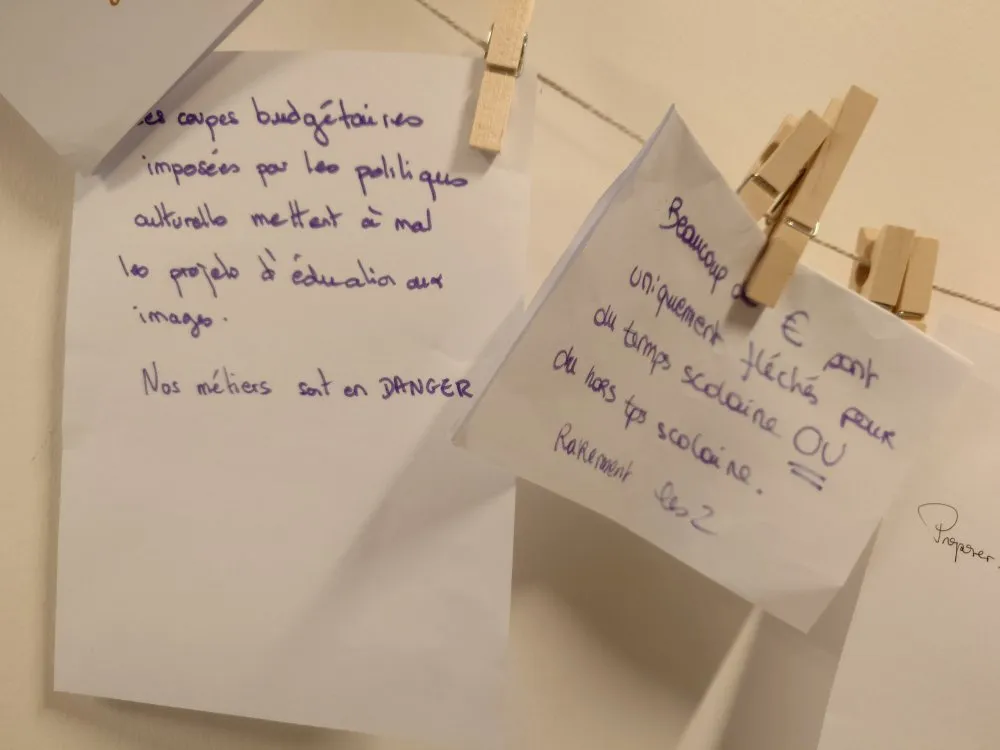 es coupes budgétaires
imposées par les politiques
culturelles mettent à mal
les projets d'éducation aux
images.
Nos métiers sont en DANGER
Beaucoup d € sont
uniquement fléchés pour
du temps scolaire OU
du hors tps scolaire.
Rarement les 2
Proposer